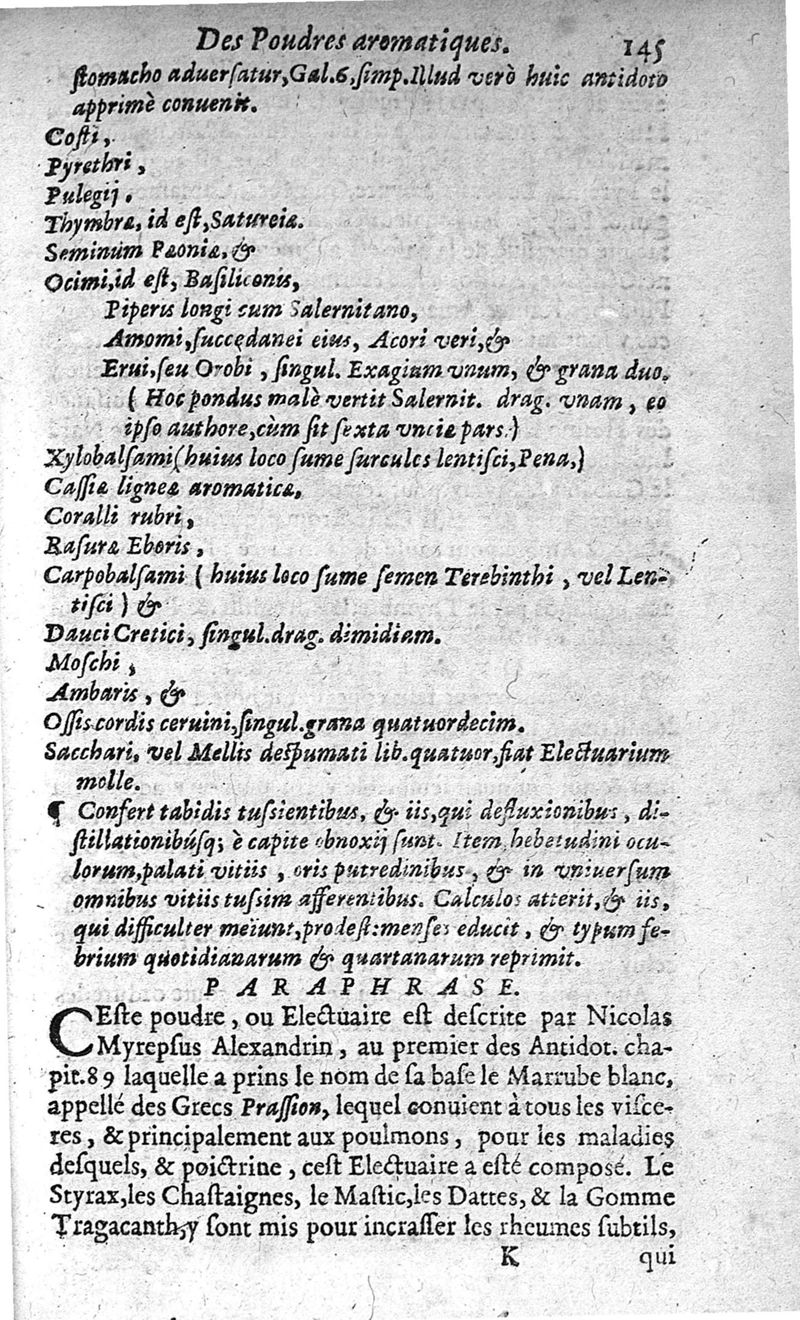 Des Poudres aromatiques. 145
ſtomacho aduerſatur, Gal. 6, ſimp. Illud verò huic antidoto
apprimè conuenit.
Coſti,
Pyrethri,
Pulegij.
Thymbræ, id eſt, Satureiæ.
Seminum Pæoniæ, &
Ocimi, id eſt, Baſiliconis,
Piperis longi cum Salernitano,
Amomi, ſuccędanei eius, Acori veri, &
Erui, ſeu Orobi, ſingul. Exagium vnum, & grana duo.
( Hoc pondus malè vertit Salernit. drag. vnam, eo
ipſo authore, cùm ſit ſexta vnciæ pars.)
Xylobalſami (huius loco ſume ſurculos lentiſci, Pena,)
Caſſiæ ligneæ aromaticæ,
Coralli rubri,
Raſuræ Eboris,
Carpobalſami ( huius loco ſume ſemen Terebinthi, vel Len-
tiſci ) &
Dauci Cretici, ſingul. drag. dimidiam.
Moſchi,
Ambaris, &
Oſſis cordis ceruini, ſingul. grana quatuordecim.
Sacchari, vel Mellis deſpumati lib. quatuor, fiat Electuarium
molle.
¶ Confert tabidis tuſsientibus, & iis, qui defluxionibus, di-
ſtillationibúſq; è capite obnoxij ſunt. Item hebetudini ocu-
lorum, palati vitiis, oris putredinibus, & in vniuerſum
omnibus vitiis tuſsim afferentibus. Calculos atterit, & iis,
qui difficulter meiunt, prodeſt: menſes educit, & typum fe-
brium quotidianarum & quartanarum reprimit.
PARAPHRASE.
CEſte poudre, ou Electuaire eſt deſcrite par Nicolas
Myrepſus Alexandrin, au premier des Antidot. cha-
pit. 89 laquelle a prins le nom de ſa baſe le Marrube blanc,
appellé des Grecs Praſſion, lequel conuient à tous les viſce-
res, & principalement aux poulmons, pour les maladies
deſquels, & poictrine, ceſt Electuaire a eſté compoſé. Le
Styrax, les Chaſtaignes, le Maſtic, les Dattes, & la Gomme
Tragacanth, y ſont mis pour incraſſer les rheumes ſubtils,
K qui